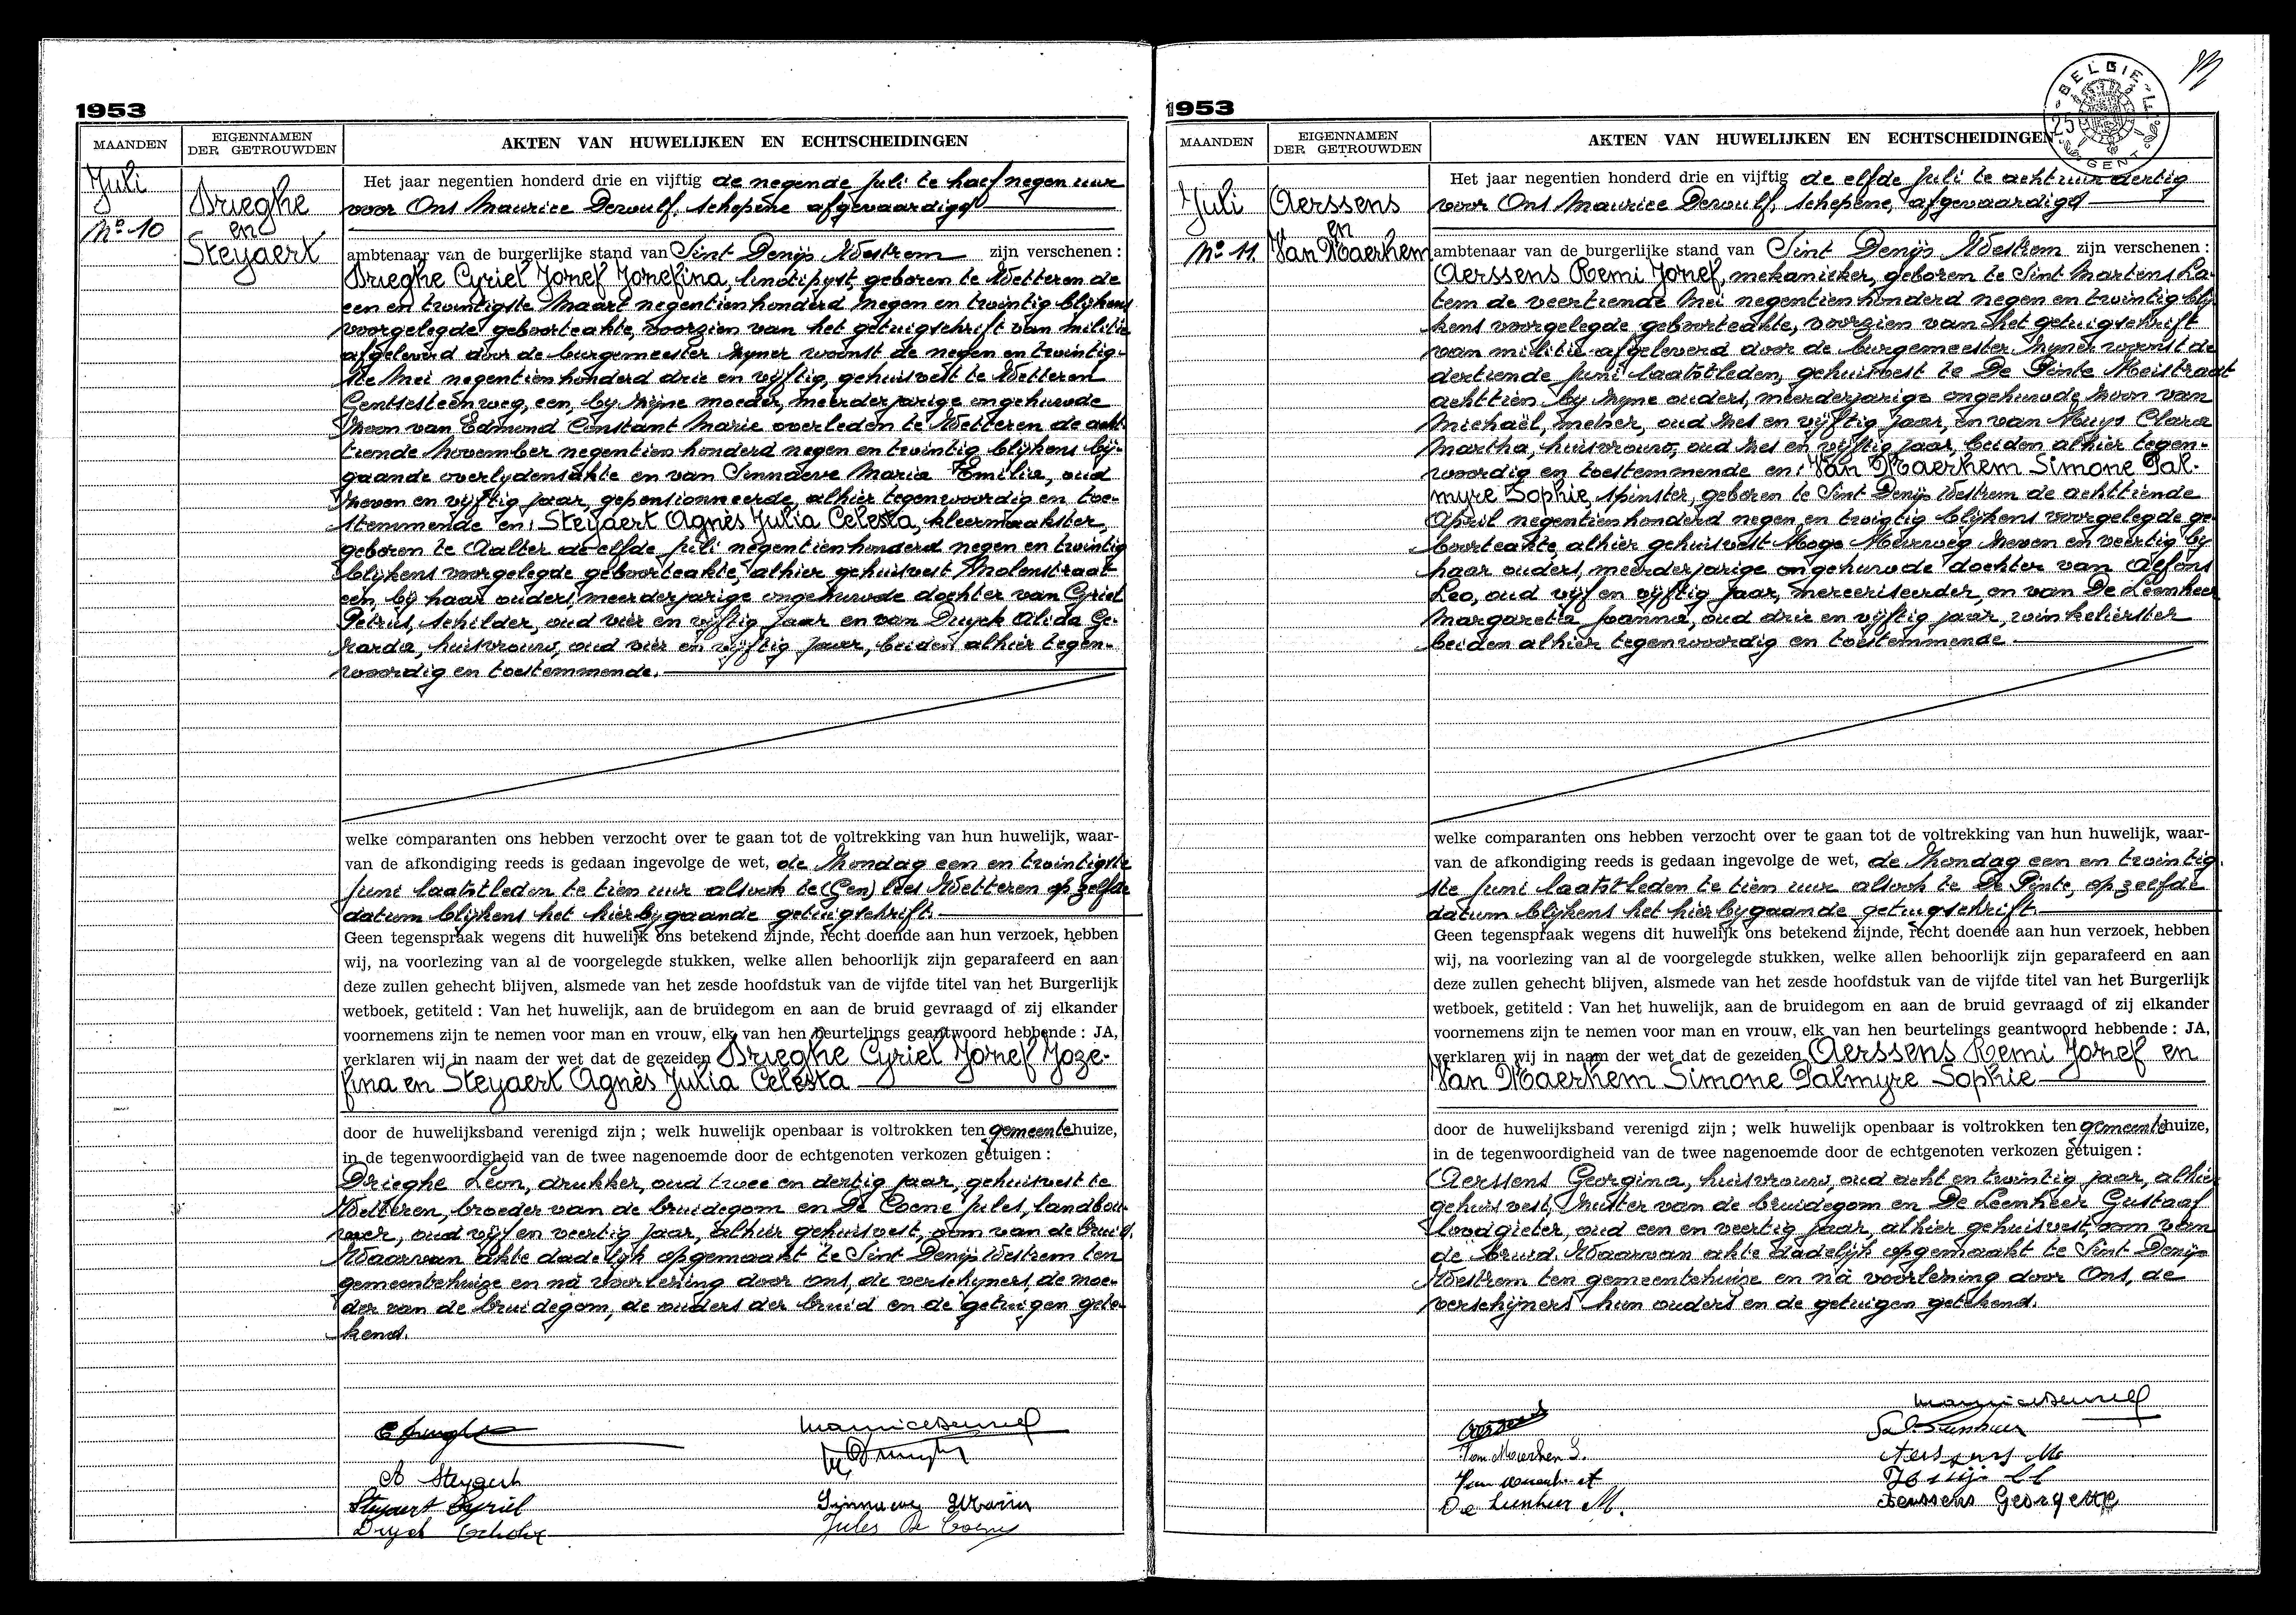 1953
MAANDEN
EIGENNAMEN
DER GETROUWDEN
AKTEN VAN HUWELIJKEN EN ECHTSCHEIDINGEN
Juli
No 10
Drieghe
en
Steyaert
Het jaar negentien honderd drie en vijftig de negende Juli te half negen uur
voor Ons Maurice Dewulf, schepene afgevaardigd
ambtenaar van de burgerlijke stand van Sint Denijs Westrem zijn verschenen :
Drieghe Cyriel Jozef Jozefina, linotipyst, geboren te Wetteren de
een en twintigste Maart negentienhonderd negen en twintig blijkens
voorgelegde geboorteakte, voorzien van het getuigschrift van militie
afgeleverd door de burgemeester zijner woonst de negen en twintig-
ste Mei negentienhonderd drie en vijftig, gehuisvest te Wetteren
Gentsesteenweg, een, bij zijne moeder, meerderjarige ongehuwde
zoon van Edmond Constant Marie overleden te Wetteren de acht-
tiende November negentienhonderd negen en twintig blijkens bij-
gaande overlydensakte en van Sinnaeve Maria Emilia, oud
zeven en vijftig jaar, gepensionneerde, alhier tegenwoordig en toe-
stemmende en: Steyaert Agnès Julia Celesta, kleermaakster
geboren te Aalter de elfde Juli negentienhonderd negen en twintig
blijkens voorgelegde geboorteakte, alhier gehuisvest Molenstraat
een, bij haar ouders, meerderjarige ongehuwde dochter van Cyriel
Petrus, schilder, oud vier en vijftig jaar en van Druyck Alida Ge-
rarda, huisvrouw, oud vier en vijftig jaar, beiden alhier tegen-
woordig en toestemmende.
welke comparanten ons hebben verzocht over te gaan tot de voltrekking van hun huwelijk, waar-
van de afkondiging reeds is gedaan ingevolge de wet, de Zondag een en twintigste
Juni laatstleden te tien uur alsook te (Gen) lees Wetteren op zelfde
datum blijkens het hierbygaande getuigschrift.
Geen tegenspraak wegens dit huwelijk ons betekend zijnde, recht doende aan hun verzoek, hebben
wij, na voorlezing van al de voorgelegde stukken, welke allen behoorlijk zijn geparafeerd en aan
deze zullen gehecht blijven, alsmede van het zesde hoofdstuk van de vijfde titel van het Burgerlijk
wetboek, getiteld : Van het huwelijk, aan de bruidegom en aan de bruid gevraagd of zij elkander
voornemens zijn te nemen voor man en vrouw, elk van hen beurtelings geantwoord hebbende : JA,
verklaren wij in naam der wet dat de gezeiden Drieghe Cyriel Jozef Joze-
fina en Steyaert Agnès Julia Celesta
door de huwelijksband verenigd zijn ; welk huwelijk openbaar is voltrokken ten gemeentehuize,
in de tegenwoordigheid van de twee nagenoemde door de echtgenoten verkozen getuigen :
Drieghe Leon, drukker, oud twee en dertig jaar, gehuisvest te
Wetteren, broeder van de bruidegom en De Coene Jules, landbou-
wer, oud vijf en veertig jaar, alhier gehuisvest, oom van de bruid.
Waarvan akte dadelijk opgemaakt te Sint Denijs Westrem ten
gemeentehuize en na voorlezing door ons, de verschijners, de moe-
der van de bruidegom, de ouders der bruid en de getuigen gete-
kend.
A Steyaert
Steyaert Cyriel
Sinnaeve Maria
Jules De Coene
1953
MAANDEN
EIGENNAMEN
DER GETROUWDEN
AKTEN VAN HUWELIJKEN EN ECHTSCHEIDINGEN
BELGIE
GENT
Juli
No 11
Aerssens
en
Van Maerhem
Het jaar negentien honderd drie en vijftig de elfde Juli te acht uur dertig
voor Ons Maurice Dewulf, schepene, afgevaardigd
ambtenaar van de burgerlijke stand van Sint Denijs Westrem zijn verschenen :
Aerssens Remi Jozef, mekanieker, geboren te Sint Martens La-
tem de veertiende Mei negentienhonderd negen en twintig blij-
kens voorgelegde geboorteakte, voorzien van het getuigschrift
van militie afgeleverd door de burgemeester zijner woonst de
dertiende Juni laatstleden, gehuisvest te De Pinte Heistraat
achttien bij zijne ouders, meerderjarige ongehuwde zoon van
Michaël, melker, oud zes en vijftig jaar, en van Huys Clara
Martha, huisvrouw, oud zes en vijftig jaar, beiden alhier tegen-
woordig en toestemmende en: Van Maerhem Simone Pal-
myre Sophie, spinster, geboren te Sint Denijs Westrem de achttiende
April negentienhonderd negen en twigtig blijkens voorgelegde ge-
boorteakte, alhier gehuisvest Hoge Heirweg zeven en veertig bij
haar ouders, meerderjarige ongehuwde dochter van Alfons
Leo, oud vijf en vijftig jaar, merceriseerder, en van De Leenheer
Margareta Joanna, oud drie en vijftig jaar, winkelierster
beiden alhier tegenwoordig en toestemmende
welke comparanten ons hebben verzocht over te gaan tot de voltrekking van hun huwelijk, waar-
van de afkondiging reeds is gedaan ingevolge de wet, de Zondag een en twintig-
ste Juni laatstleden te tien uur alsook te De Pinte, op zelfde
datum blijkens het hierbygaande getuigschrift.
Geen tegenspraak wegens dit huwelijk ons betekend zijnde, recht doende aan hun verzoek, hebben
wij, na voorlezing van al de voorgelegde stukken, welke allen behoorlijk zijn geparafeerd en aan
deze zullen gehecht blijven, alsmede van het zesde hoofdstuk van de vijfde titel van het Burgerlijk
wetboek, getiteld : Van het huwelijk, aan de bruidegom en aan de bruid gevraagd of zij elkander
voornemens zijn te nemen voor man en vrouw, elk van hen beurtelings geantwoord hebbende : JA,
verklaren wij in naam der wet dat de gezeiden Aerssens Remi Jozef en
Van Maerhem Simone Palmyre Sophie
door de huwelijksband verenigd zijn ; welk huwelijk openbaar is voltrokken ten gemeentehuize,
in de tegenwoordigheid van de twee nagenoemde door de echtgenoten verkozen getuigen :
Aerssens Georgina, huisvrouw, oud acht en twintig jaar, alhier
gehuisvest, zuster van de bruidegom en De Leenheer Gustaaf
loodgieter, oud een en veertig jaar, alhier gehuisvest, oom van
de bruid. Waarvan akte dadelijk opgemaakt te Sint Denijs
Westrem ten gemeentehuize en na voorlezing door Ons, de
verschijners hun ouders en de getuigen getekend.
Van Maerhem S.
De Leenheer M.
Aerssens Georgette